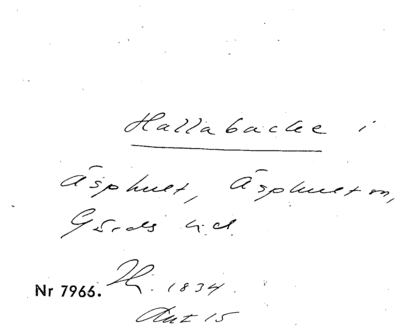 Hallabacke i
Äsphult, Äsphult sn,
Gärds hd.
Nr 7966. 1834.
Akt 15